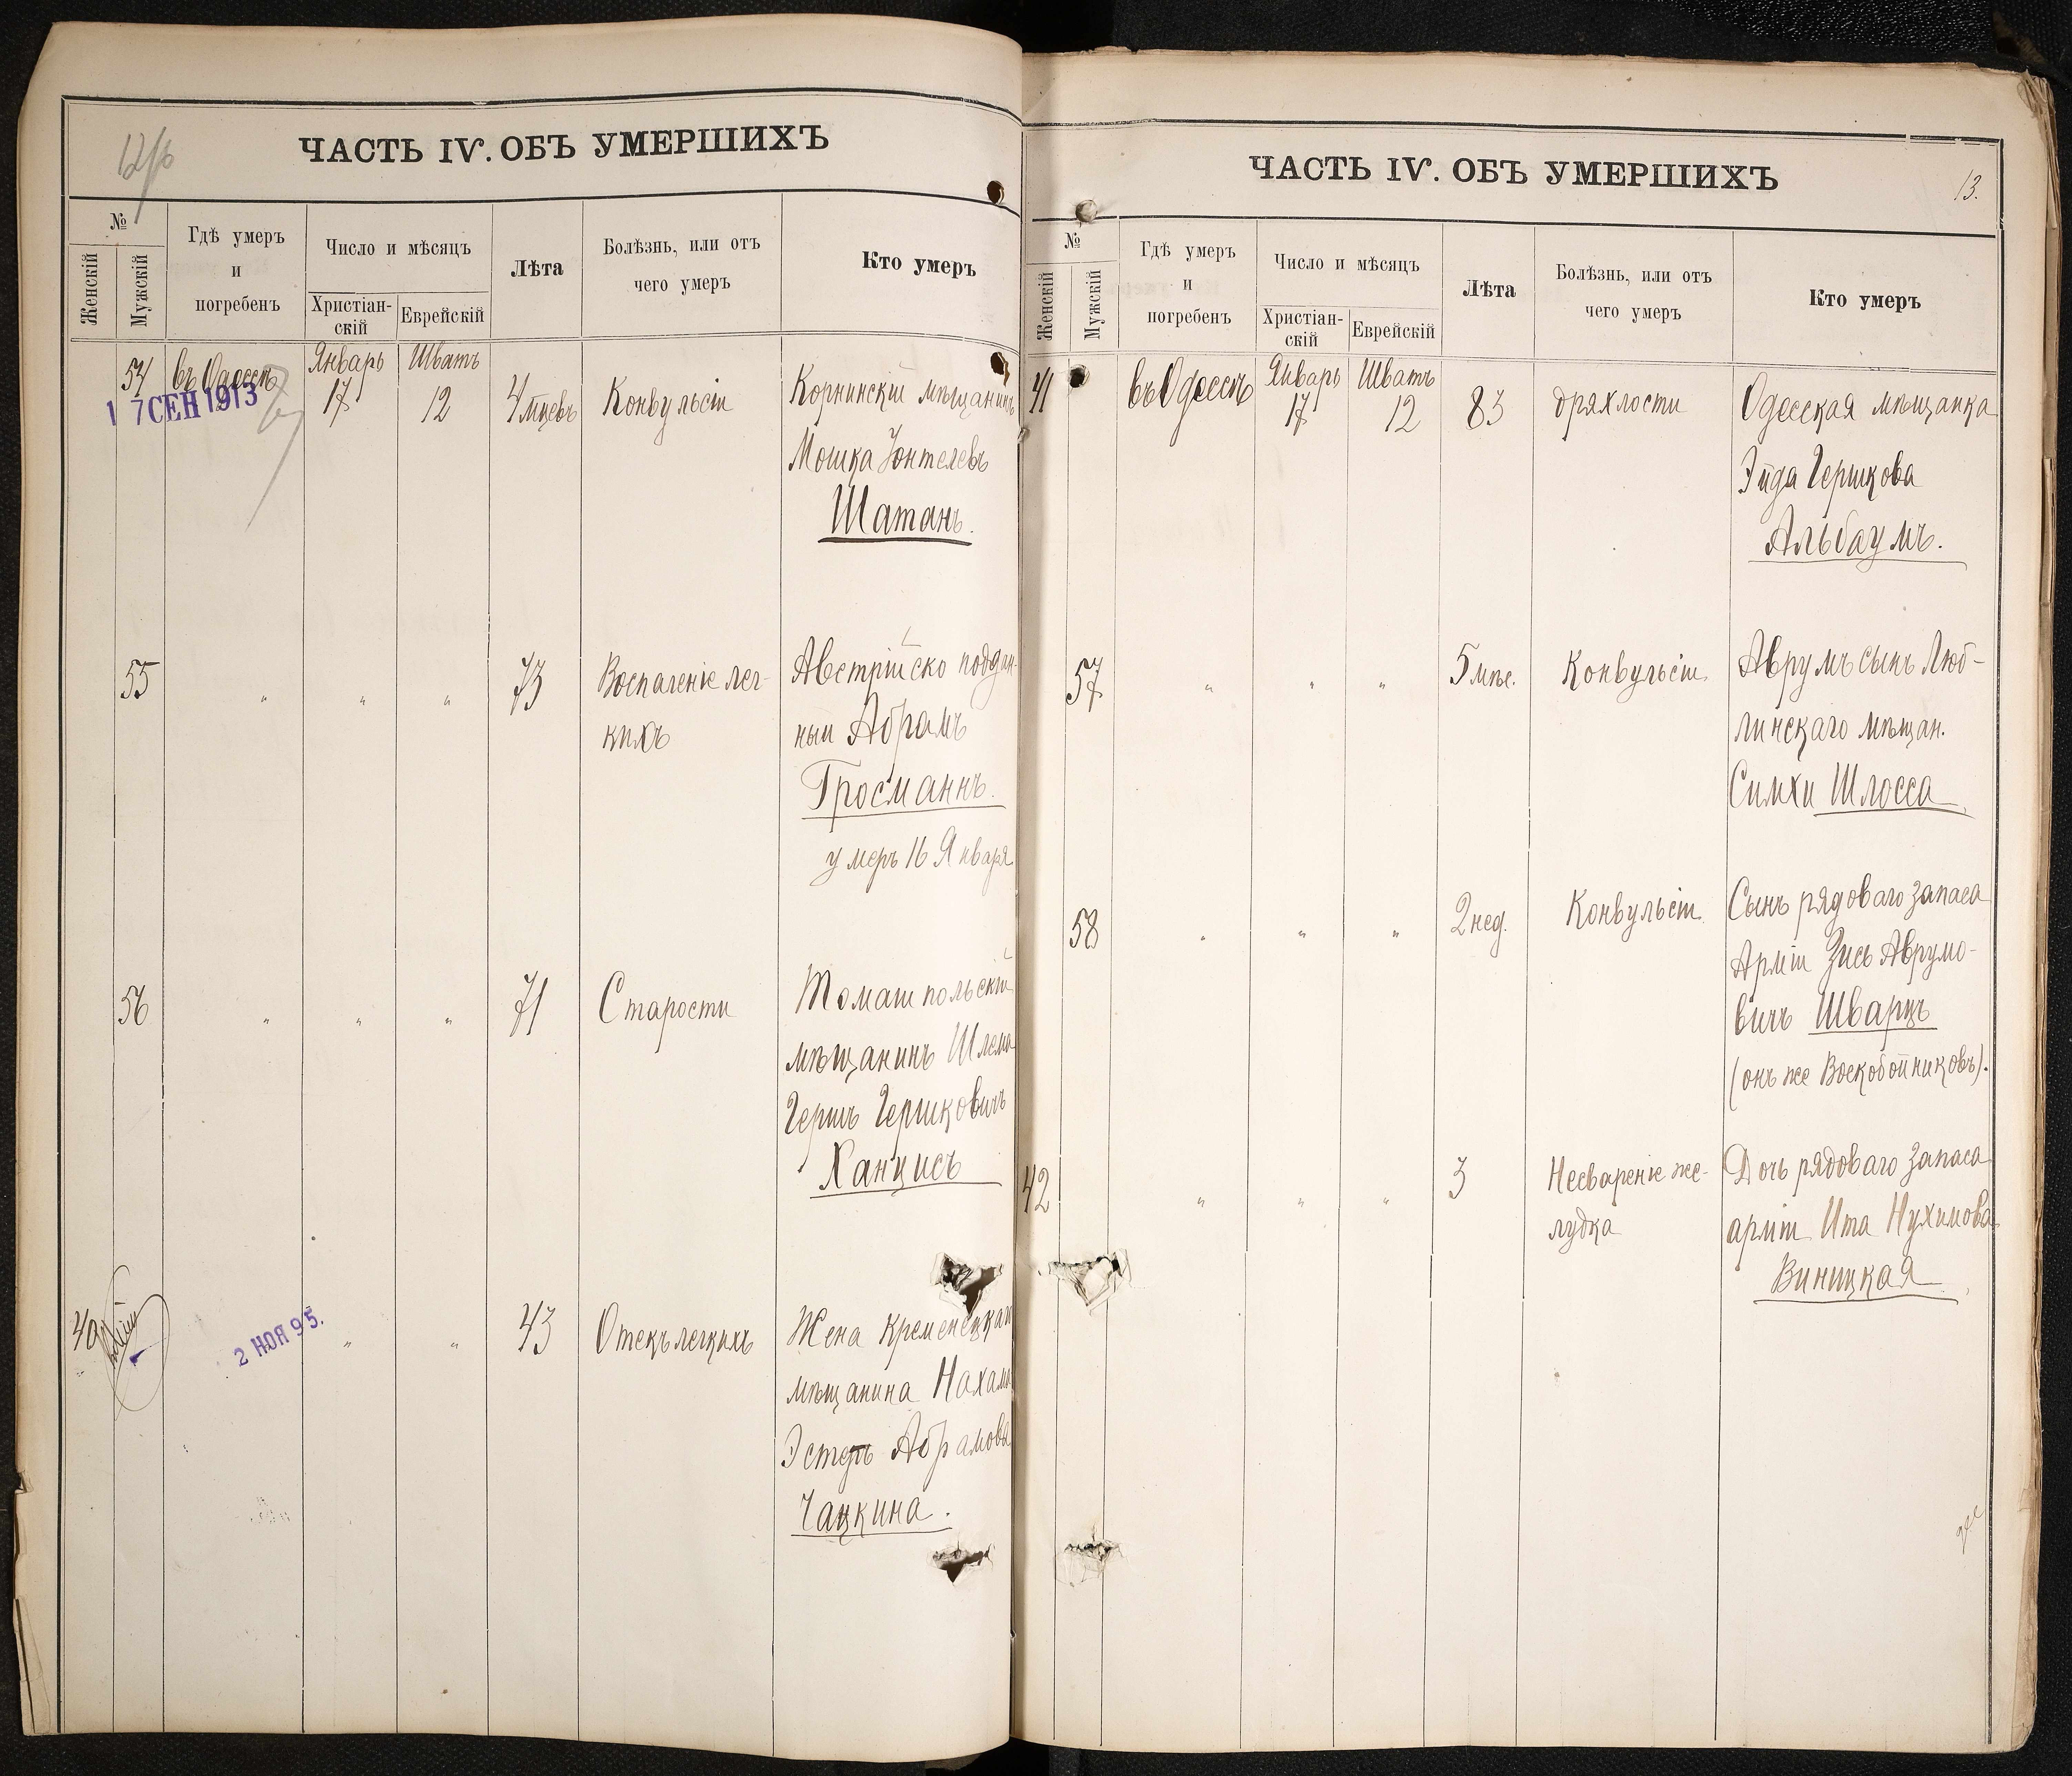 12/б
ЧАСТЬ IV. ОБЪ УМЕРШИХЪ
№
Женскій
Мужскій
Гдѣ умеръ
и
погребенъ
Число и мѣсяцъ
Христіан-
скій
Еврейскій
Лѣта
Болѣзнь, или отъ
чего умеръ
Кто умеръ
54 въ Одессѣ Январь 17 Шватъ 12 4 мцевъ Конвульсіи Корнинскій мѣщанинъ
17 СЕН 1913
Мошка Іонтелевъ
Шатанъ.
55 „ „ „ 73 Воспаленіе лег- Австрійско поддан-
кихъ ный Абрамъ
Гросманнъ.
умеръ 16 Января
56 „ „ „ 71 Старости Томашпольскій
мѣщанинъ Шлема
Гершъ Гершковичъ
Ханцисъ
40 „ „ 43 Отекъ легкихъ Жена Кременецкаго
2 НОЯ 95.
мѣщанина Нахама
Эстеръ Абрамова
Чацкина.
ЧАСТЬ IV. ОБЪ УМЕРШИХЪ
13.
№
Женскій
Мужскій
Гдѣ умеръ
и
погребенъ
Число и мѣсяцъ
Христіан-
скій
Еврейскій
Лѣта
Болѣзнь, или отъ
чего умеръ
Кто умеръ
41 въ Одессѣ Январь 17 Шватъ 12 83 дряхлости Одесская мѣщанка
Эйда Гершкова
Альбаумъ.
57 „ „ „ 5 мѣс. Конвульсіи Аврумъ сынъ Люб-
линскаго мѣщан.
Симхи Шлосса
58 „ „ „ 2 нед. Конвульсіи Сынъ рядоваго запаса
Арміи Зись Аврумо-
вичъ Шварцъ
(онъ же Воскобойниковъ).
42 „ „ „ 3 Несвареніе же- Дочь рядоваго запаса
лудка арміи Ита Нухимова
Виницкая